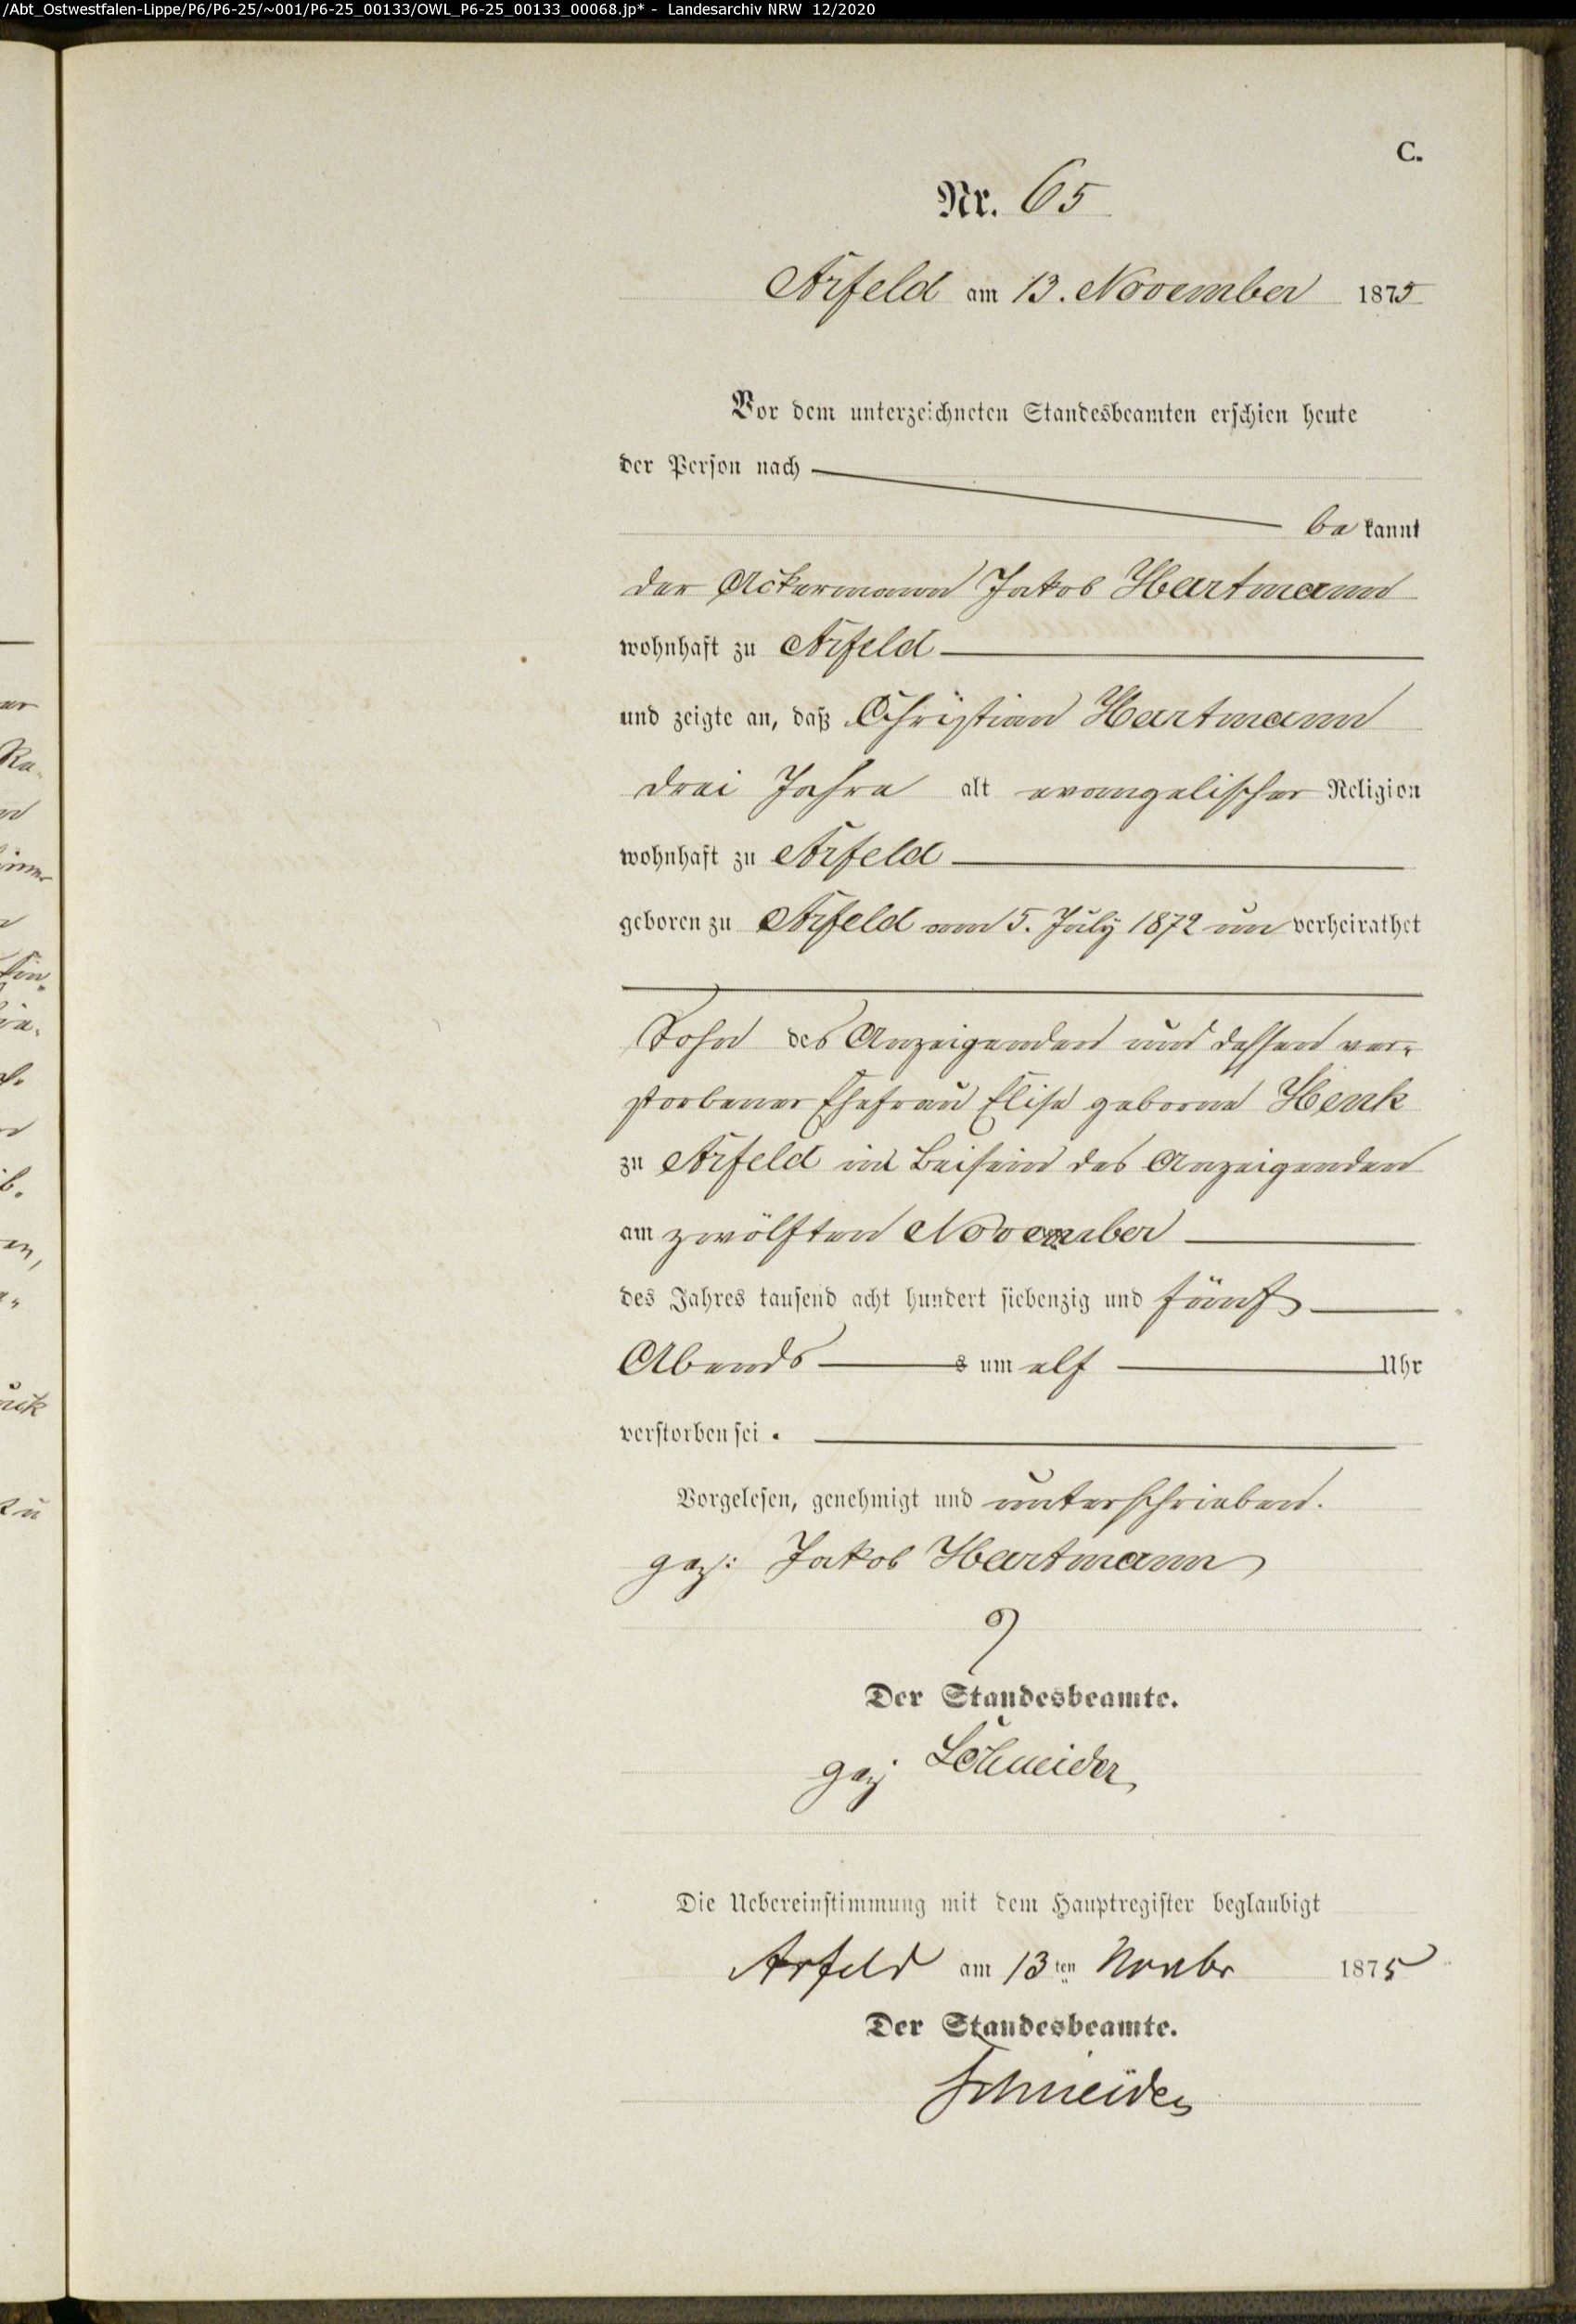 /Abt_Ostwestfalen-Lippe/P6/P6-25/~001/P6-25_00133/OWL_P6-25_00133_00068.jp* - Landesarchiv NRW 12/2020
C.
Nr. 65
Arfeld am 13. November 1875
Vor dem unterzeichneten Standesbeamten erschien heute
der Person nach
bekannt
der Ackermann Jakob Hartmann
wohnhaft zu Arfeld
und zeigte an, daß Christian Hartmann
drei Jahre alt evangelischer Religion
wohnhaft zu Arfeld
geboren zu Arfeld am 5. July 1872 unverheirathet
Sohn des Anzeigenden und dessen ver-
storbener Ehefrau Elise geborne Henk
zu Arfeld im Beisein des Anzeigenden
am zwölften November
des Jahres tausend acht hundert siebenzig und fünf
Abends um elf Uhr
verstorben sei.
Vorgelesen, genehmigt und unterschrieben.
gez: Jakob Hartmann
Der Standesbeamte.
gez Schneider
Die Uebereinstimmung mit dem Hauptregister beglaubigt
Arfeld am 13ten Novbr 1875
Der Standesbeamte.
Schneider